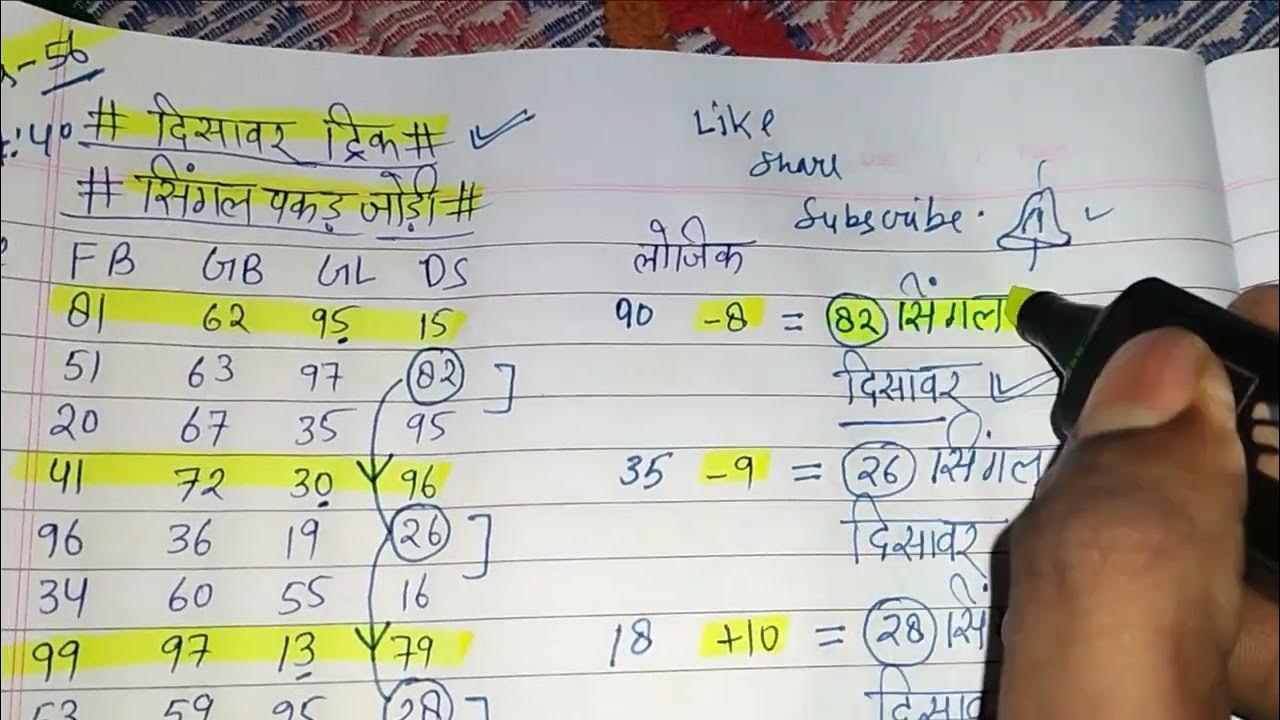 56
:40 # दिसावर ट्रिक #
# सिंगल पकड़ जोड़ी #
Like
Share
Subscribe.
FB GB GL DS लोजिक
81 62 95 15 90 -8 = 82 सिंगल
51 63 97 82 दिसावर
20 67 35 95
41 72 30 96 35 -9 = 26 सिंगल
96 36 19 26 दिसावर
34 60 55 16
99 97 13 79 18 +10 = 28 सिं
53 59 95 28 दिसाव